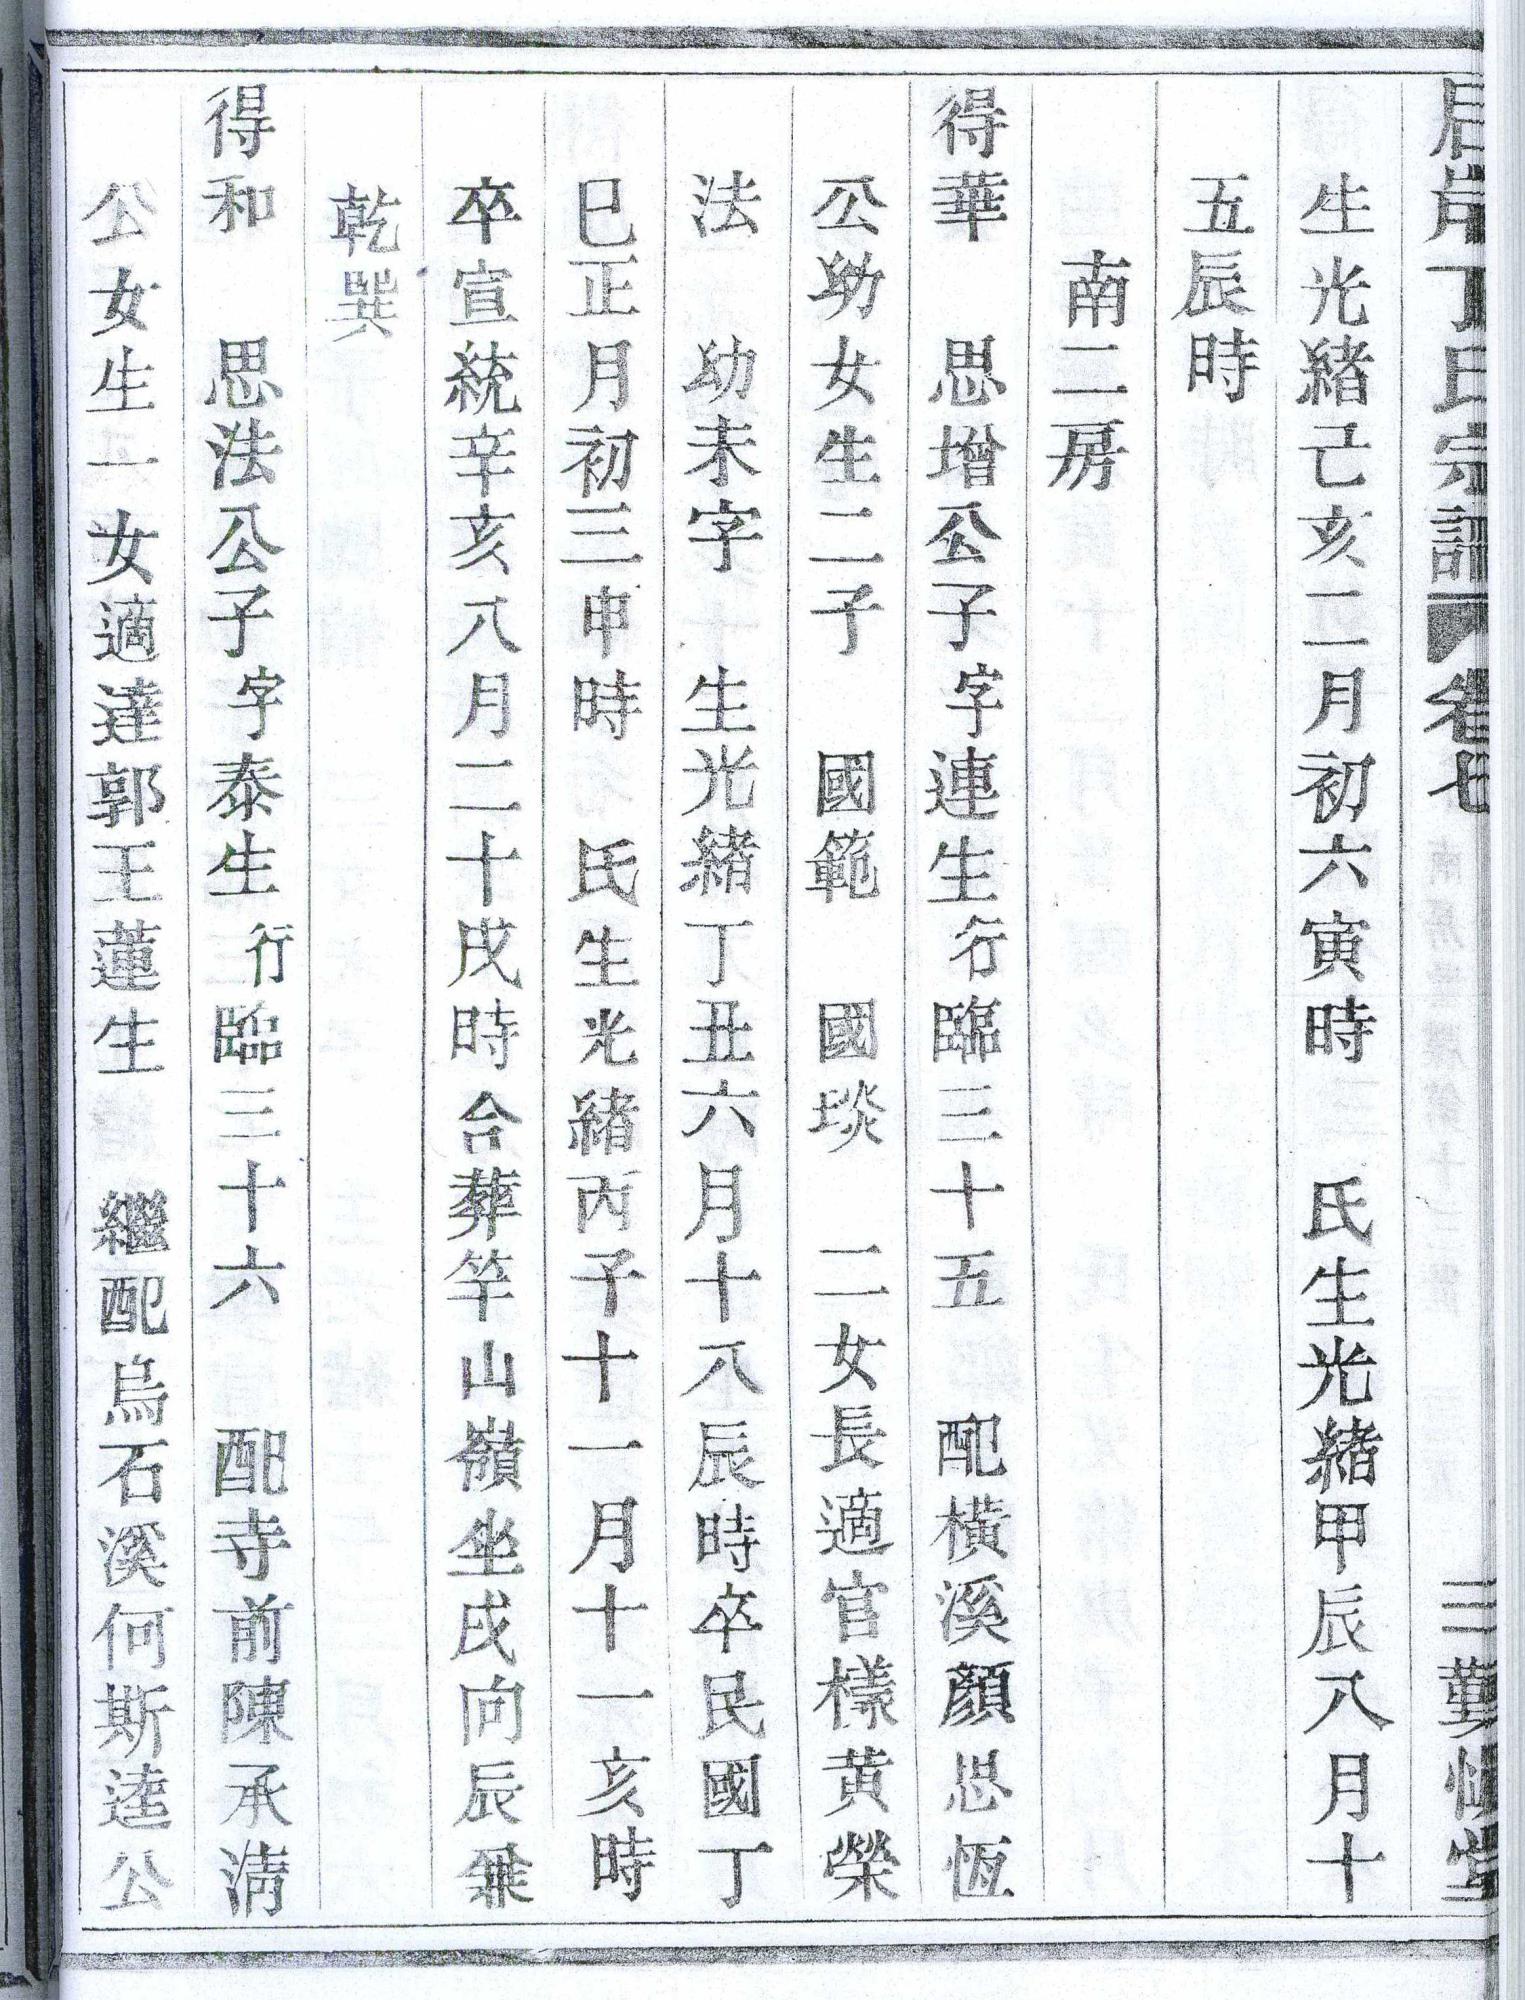 丁氏宗譜 卷七 三 勤慎堂
生光緒己亥二月初六寅時 氏生光緒甲辰八月十
五辰時
南二房
得華 思增公子字連生行臨三十五 配橫溪顏思恆
公幼女生二子 國範 國埮 二女長適官樣黃榮
法 幼未字 生光緒丁丑六月十八辰時卒民國丁
巳正月初三申時 氏生光緒丙子十一月十一亥時
卒宣統辛亥八月二十戌時合葬竿山嶺坐戌向辰兼
乾巽
得和 思法公子字泰生行臨三十六 配寺前陳承淸
公女生一女適達郭王蓮生 繼配烏石溪何斯逵公